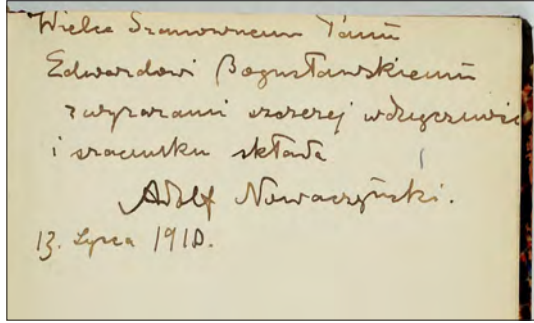 Wielce Szanownemu Panu
Edwardowi Bogusławskiemu
z wyrazami szczerej wdzięczności
i szacunku składa
Adolf Nowaczyński.
13. Lipca 1918.